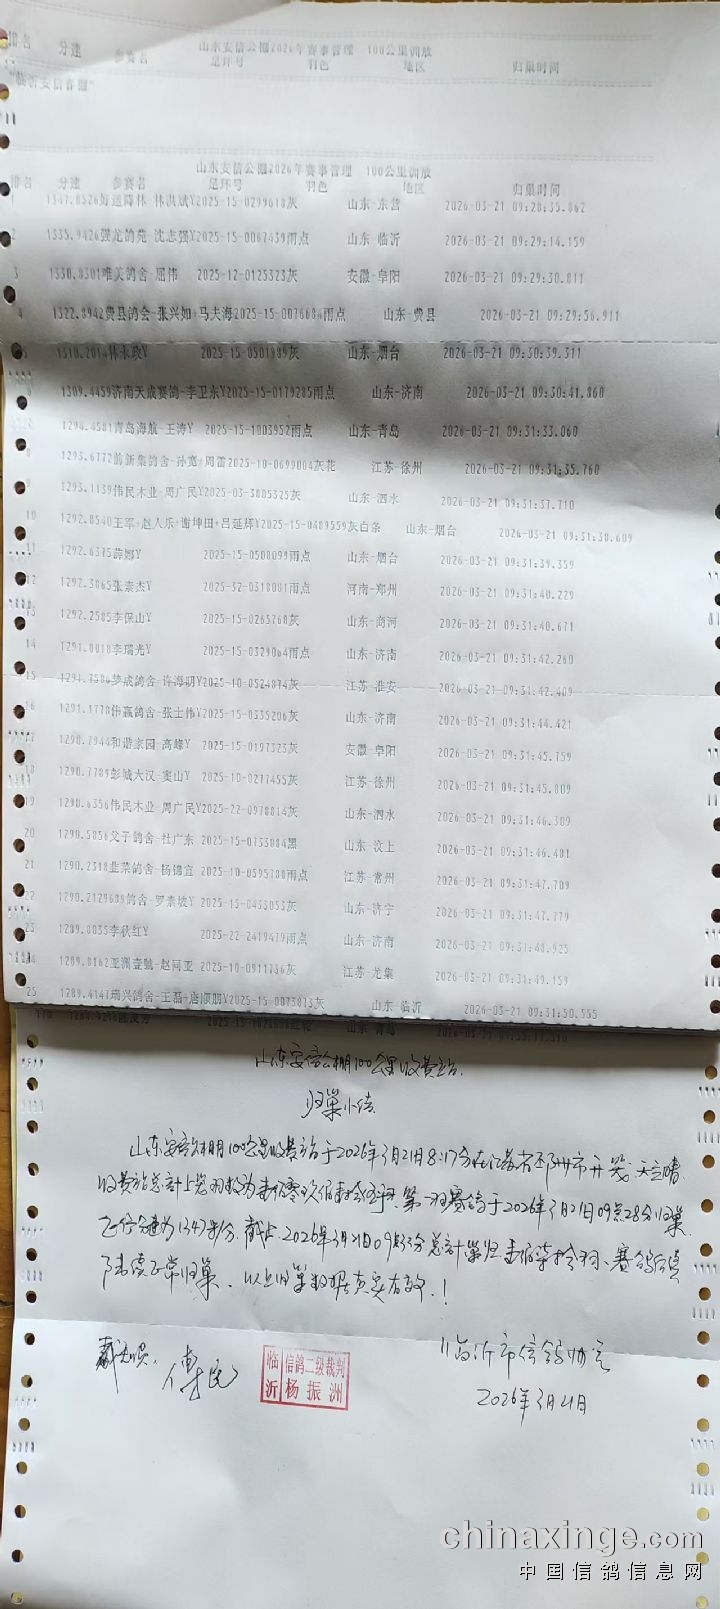 排名 分速 参赛名 山东安信公棚2026年赛事管理 100公里训放
足环号 羽色 地区 归巢时间
"临沂安信春棚"
山东安信公棚2026年赛事管理 100公里训放
排名 分速 参赛名 足环号 羽色 地区 归巢时间
1 1347.8526好运降林-林洪斌Y2025-15-0299618灰 山东-东营 2026-03-21 09:28:35.862
2 1335.9426强龙鸽苑-沈志强Y2025-15-0067439雨点 山东-临沂 2026-03-21 09:29:14.159
3 1330.8301唯美鸽舍-屈伟 2025-12-0125323灰 安徽-阜阳 2026-03-21 09:29:30.811
4 1322.8942费县鸽会-张兴如+马夫海2025-15-0076684雨点 山东-费县 2026-03-21 09:29:56.911
5 1310.2014林永 Y 2025-15-0501889灰 山东-烟台 2026-03-21 09:30:39.311
6 1309.4459济南天成赛鸽-李卫东Y2025-15-0179285雨点 山东-济南 2026-03-21 09:30:41.860
1294.4581青岛海航-王涛Y 2025-15-1003952雨点 山东-青岛 2026-03-21 09:31:33.060
8 1293.6772前新集鸽舍-孙 +周雷2025-10-0699004灰花 江苏-徐州 2026-03-21 09:31:35.760
9 1293.1139伟民木业-周广民Y2025-03-3805325灰 山东-泗水 2026-03-21 09:31:37.710
10 1292.8540王军+赵人乐+谢坤田+吕延辉Y2025-15-0489559灰白条 山东-烟台 2026-03-21 09:31:38.609
11 1292.6375薛娜Y 2025-15-0508099雨点 山东-烟台 2026-03-21 09:31:39.359
12 1292.3865张素杰Y 2025-32-0318001雨点 河南-郑州 2026-03-21 09:31:40.229
13 1292.2585李保山Y 2025-15-0265768灰 山东-商河 2026-03-21 09:31:40.671
14 1291.8018李瑞光Y 2025-15-0329064雨点 山东-济南 2026-03-21 09:31:42.260
15 1291.7586梦成鸽舍-许海明Y2025-10-0524874灰 江苏-淮安 2026-03-21 09:31:42.409
16 1291.1778伟赢鸽舍-张士伟Y2025-15-0335206灰 山东-济南 2026-03-21 09:31:44.421
17 1290.7944和谐家园-高峰Y 2025-15-0197323灰 安徽-阜阳 2026-03-21 09:31:45.759
18 1290.7789彭城大汉-窦山Y 2025-10-0277455灰 江苏-徐州 2026-03-21 09:31:45.809
19 1290.6356伟民木业-周广民Y2025-22-0978814灰 山东-泗水 2026-03-21 09:31:46.309
20 1290.5856父子鸽舍-杜广东 2025-15-0733084黑 山东-汶上 2026-03-21 09:31:46.481
21 1290.2318韭菜鸽舍-杨锦宜 2025-10-0595788雨点 江苏-常州 2026-03-21 09:31:47.709
22 1290.2129689鸽舍-罗素坡Y 2025-15-0433053灰 山东-济宁 2026-03-21 09:31:47.779
23 1289.8835李秋红Y 2025-22-2419479雨点 山东-济南 2026-03-21 09:31:48.925
24 1289.8162亚洲壹号-赵同亚 2025-10-0911736灰 江苏-龙集 2026-03-21 09:31:49.159
25 1289.4147瑞兴鸽舍-王磊+唐顺鹏Y2025-15-0073813灰 山东-临沂 2026-03-21 09:31:50.555
山东安信公棚100公里收费站
归巢小结
山东安信公棚100公里收费站于2026年3月21日8:17分在江苏省邳州市开笼,天立晴,
收费站总计上笼羽数为 第一羽赛鸽于2026年3月21日09点28分归巢
飞行分速为1347米/分,截止2026年3月21日09点35分总计巢归 羽,赛鸽后续
陆续正常归巢,以上归巢数据真实有效!
临沂 信鸽二级裁判 杨振洲
临沂市信鸽协会
2026年3月21日
chinaxinge.com
中国信鸽信息网